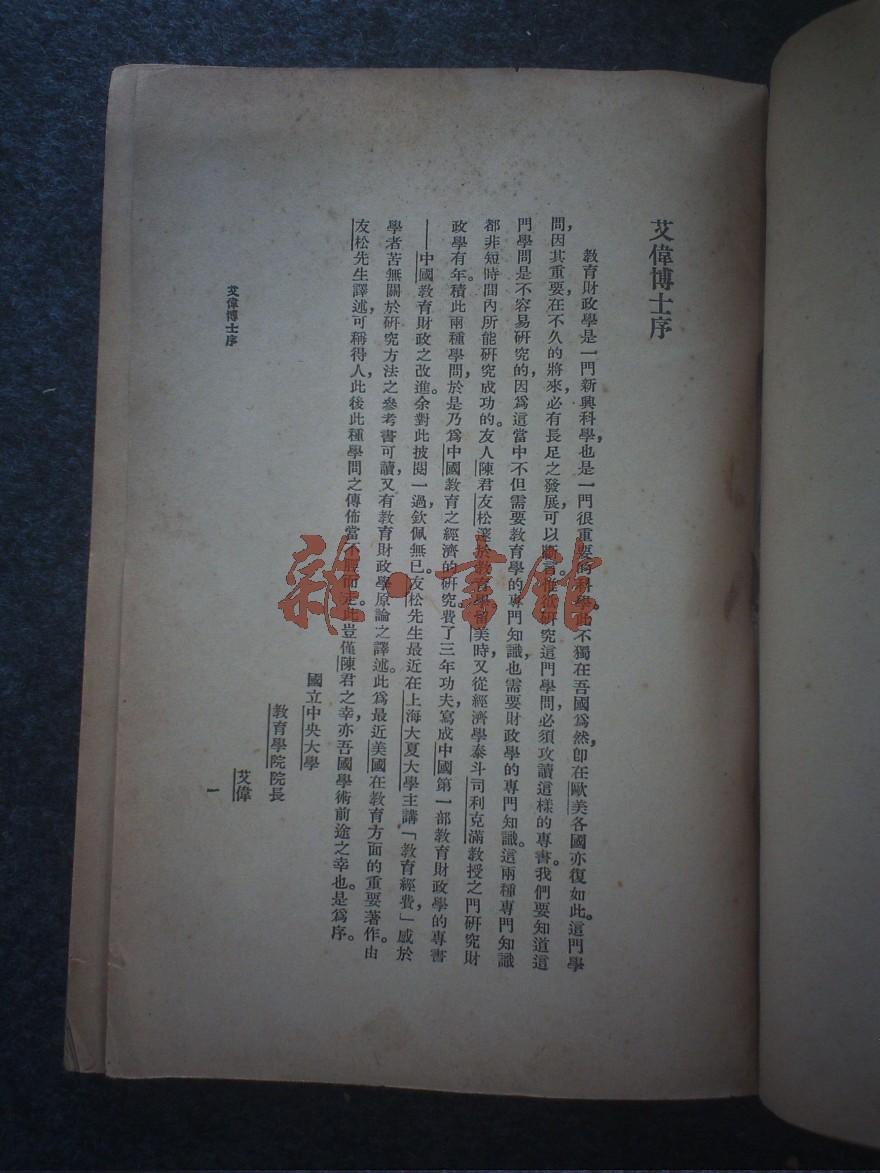 艾偉博士序
教育財政學是一門新興科學,也是一門很重要的科學。此不獨在吾國為然,卽在歐美各國亦復如此。這門學
問,因其重要,在不久的將來,必有長足之發展,可以斷言。惟欲研究這門學問,必須攻讀這樣的專書。我們要知道這
門學問是不容易研究的,因為這當中不但需要教育學的專門知識,也需要財政學的專門知識。這兩種專門知識
都非短時間內所能研究成功的。友人陳君友松邃於教育學,留美時,又從經濟學泰斗司利克滿教授之門研究財
政學有年。積此兩種學問,於是乃為中國教育之經濟的研究。費了三年功夫,寫成中國第一部教育財政學的專書
——中國教育財政之改進。余對此披閱一過,欽佩無已。友松先生最近在上海大夏大學主講「教育經費」,感於
學者苦無關於研究方法之參考書可讀,又有教育財政學原論之譯述。此為最近美國在教育方面的重要著作。由
友松先生譯述,可稱得人,此後此種學問之傳佈當不脛而走。此豈僅陳君之幸,亦吾國學術前途之幸也。是為序。
國立中央大學
教育學院院長
艾偉
艾偉博士序
一
雜·書館